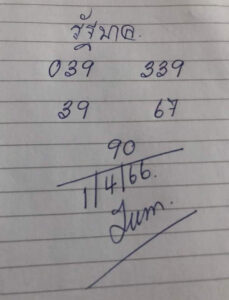 รัฐบาล.
039 339
39 67
90
1/4/66.